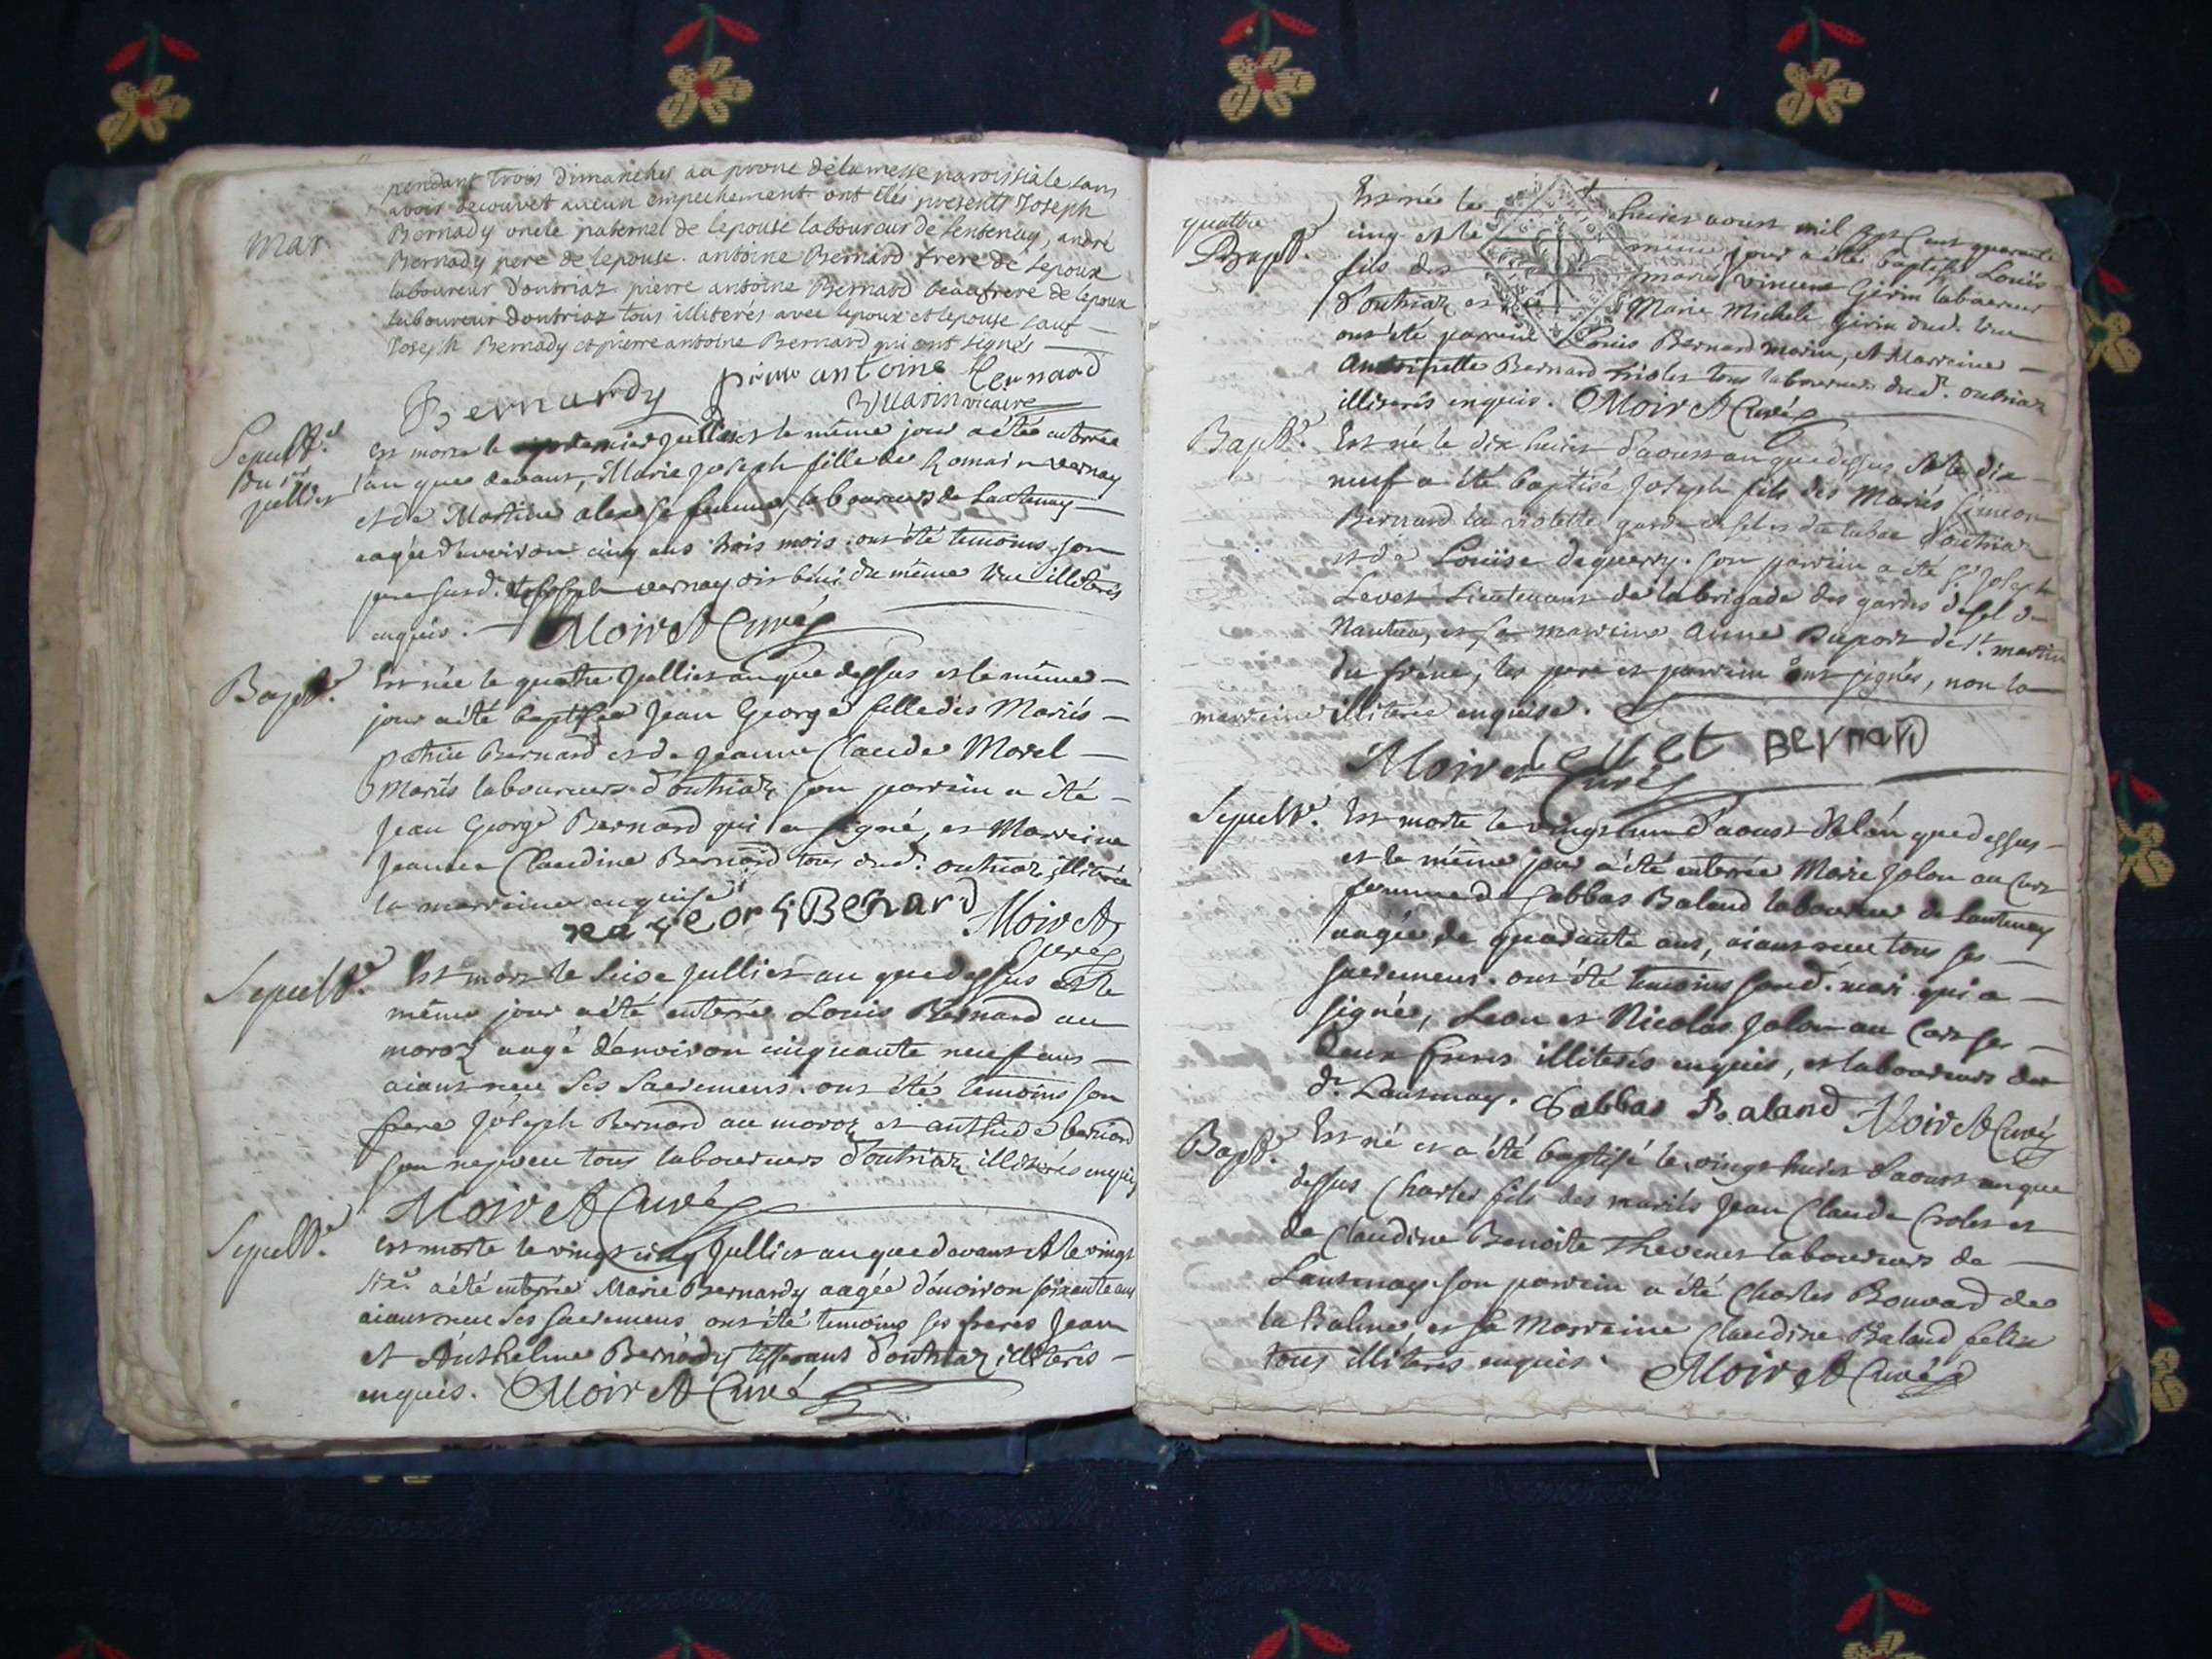 pendant trois dimanches au prone de la messe paroissiale sans
avoir decouvet aucun empechement ont étés presents Joseph
Mar.
Bernady oncle paternel de lepouse laboureur de lentenay, andré
Bernady pere de lepouse. antoine Bernard frere de lepoux
laboureur doutriaz pierre antoine Bernard beaufrere de lepoux
laboureur doutriaz tous illiterés avec lepoux et lepouse sauf
Joseph Bernady et pierre antoine Bernard qui ont signés
Bernardy pierre antoine Bernard
vicaire
Sepult.e
du 1er
jullier
Est morte le premier Jullier et le même jour a été enterrée
l'an que devant, Marie Joseph fille de Romain vernay
et de Martine sa femme, laboureurs de Lantenay
aagée d'environ cinq ans trois mois. ont été temoins son
pere susd. et Joseph vernay dit béni du même lieu illiterés
enquis. Moiret Curé
Bapt.e
Est née le quatre Jullier an que dessus et le même
jour a été baptisée Jean George fille des Mariés
patrice Bernard et de Jeanne Claude Morel
Mariés laboureurs d'outriaz son parrein a été
Jean George Bernard qui a signé, et Marreine
Jeanne Claudine Bernard tous dud. outriaz illiterée
la marreine enquise
georg Benard Moiret
Curé
Sepult.e
Est mort le seise Jullier an que dessus et le
même jour a été enterré Louis Bernard au
moroz aagé d'environ cinquante neuf ans
aiant receu ses Sacremens. ont été temoins son
frere Joseph Bernard au moroz et anthelme bernard
son neyveu tous laboureurs d'outriaz illiterés enquis
Moiret Curé
Sepult.e
Est morte le vingt cinq Jullier an que devant et le vingt
six a été enterrée Marie Bernardy aagée d'environ soixante ans
aiant receu ses sacremens ont été temoins ses freres Jean
et Anthelme Bernardy tisserans d'outriaz illiterés
enquis. Moiret Curé
quattre
Bapt.e
Est née le huict aoust mil sept cent quarante
cinq et le même jour a été baptisé Louis
fils des mariés vincent Girin laboureur
d'outriaz et de Marie Michele Girin dud. lieu
ont été parrein Louis Bernard morin, et Marreine
Bernard tous laboureurs dud. outriaz
illiterés enquis. Moiret Curé
Bapt.e
Est né le dix huict d'aoust an que dessus et le dix
neuf a été baptisé Joseph fils des Mariés Simeon
Bernard la violette garde de sel et du tabac d'outriaz
et de Louise deguerry. son parrein a été Sr Joseph
Levet Lieutenant de la brigade des gardes de sel de
Nantua, et sa marreine Anne Duport de St. martin
du frêne, les pere et parrein ont signés, non la
marreine illiterée enquise.
Moiret Levet Bernard
Curé
Sepult.e
Est morte le vingt un d'aoust de l'an que dessus
et le même jour a été enterrée Marie Jolon au Cors
femme de Sabbas Baland laboureur de Lantenay
aagée de quarante ans, aiant receu tous ses
sacremens. ont été temoins sond. mari qui a
signé, Leon et Nicolas Jolon au Cors ses
deux freres illiterés enquis, et laboureurs du
d. Lantenay. Sabbas Baland Moiret Curé
Bapt.e
Est né et a été baptisé le vingt huict d'aoust an que
dessus Charles fils des mariés Jean Claude et
de Claudine Benoite Thevenet laboureurs de
Lantenay. son parrein a été Charles Bouvard de
la Balme et sa Marreine Claudine Baland felix
tous illiterés enquis. Moiret Curé